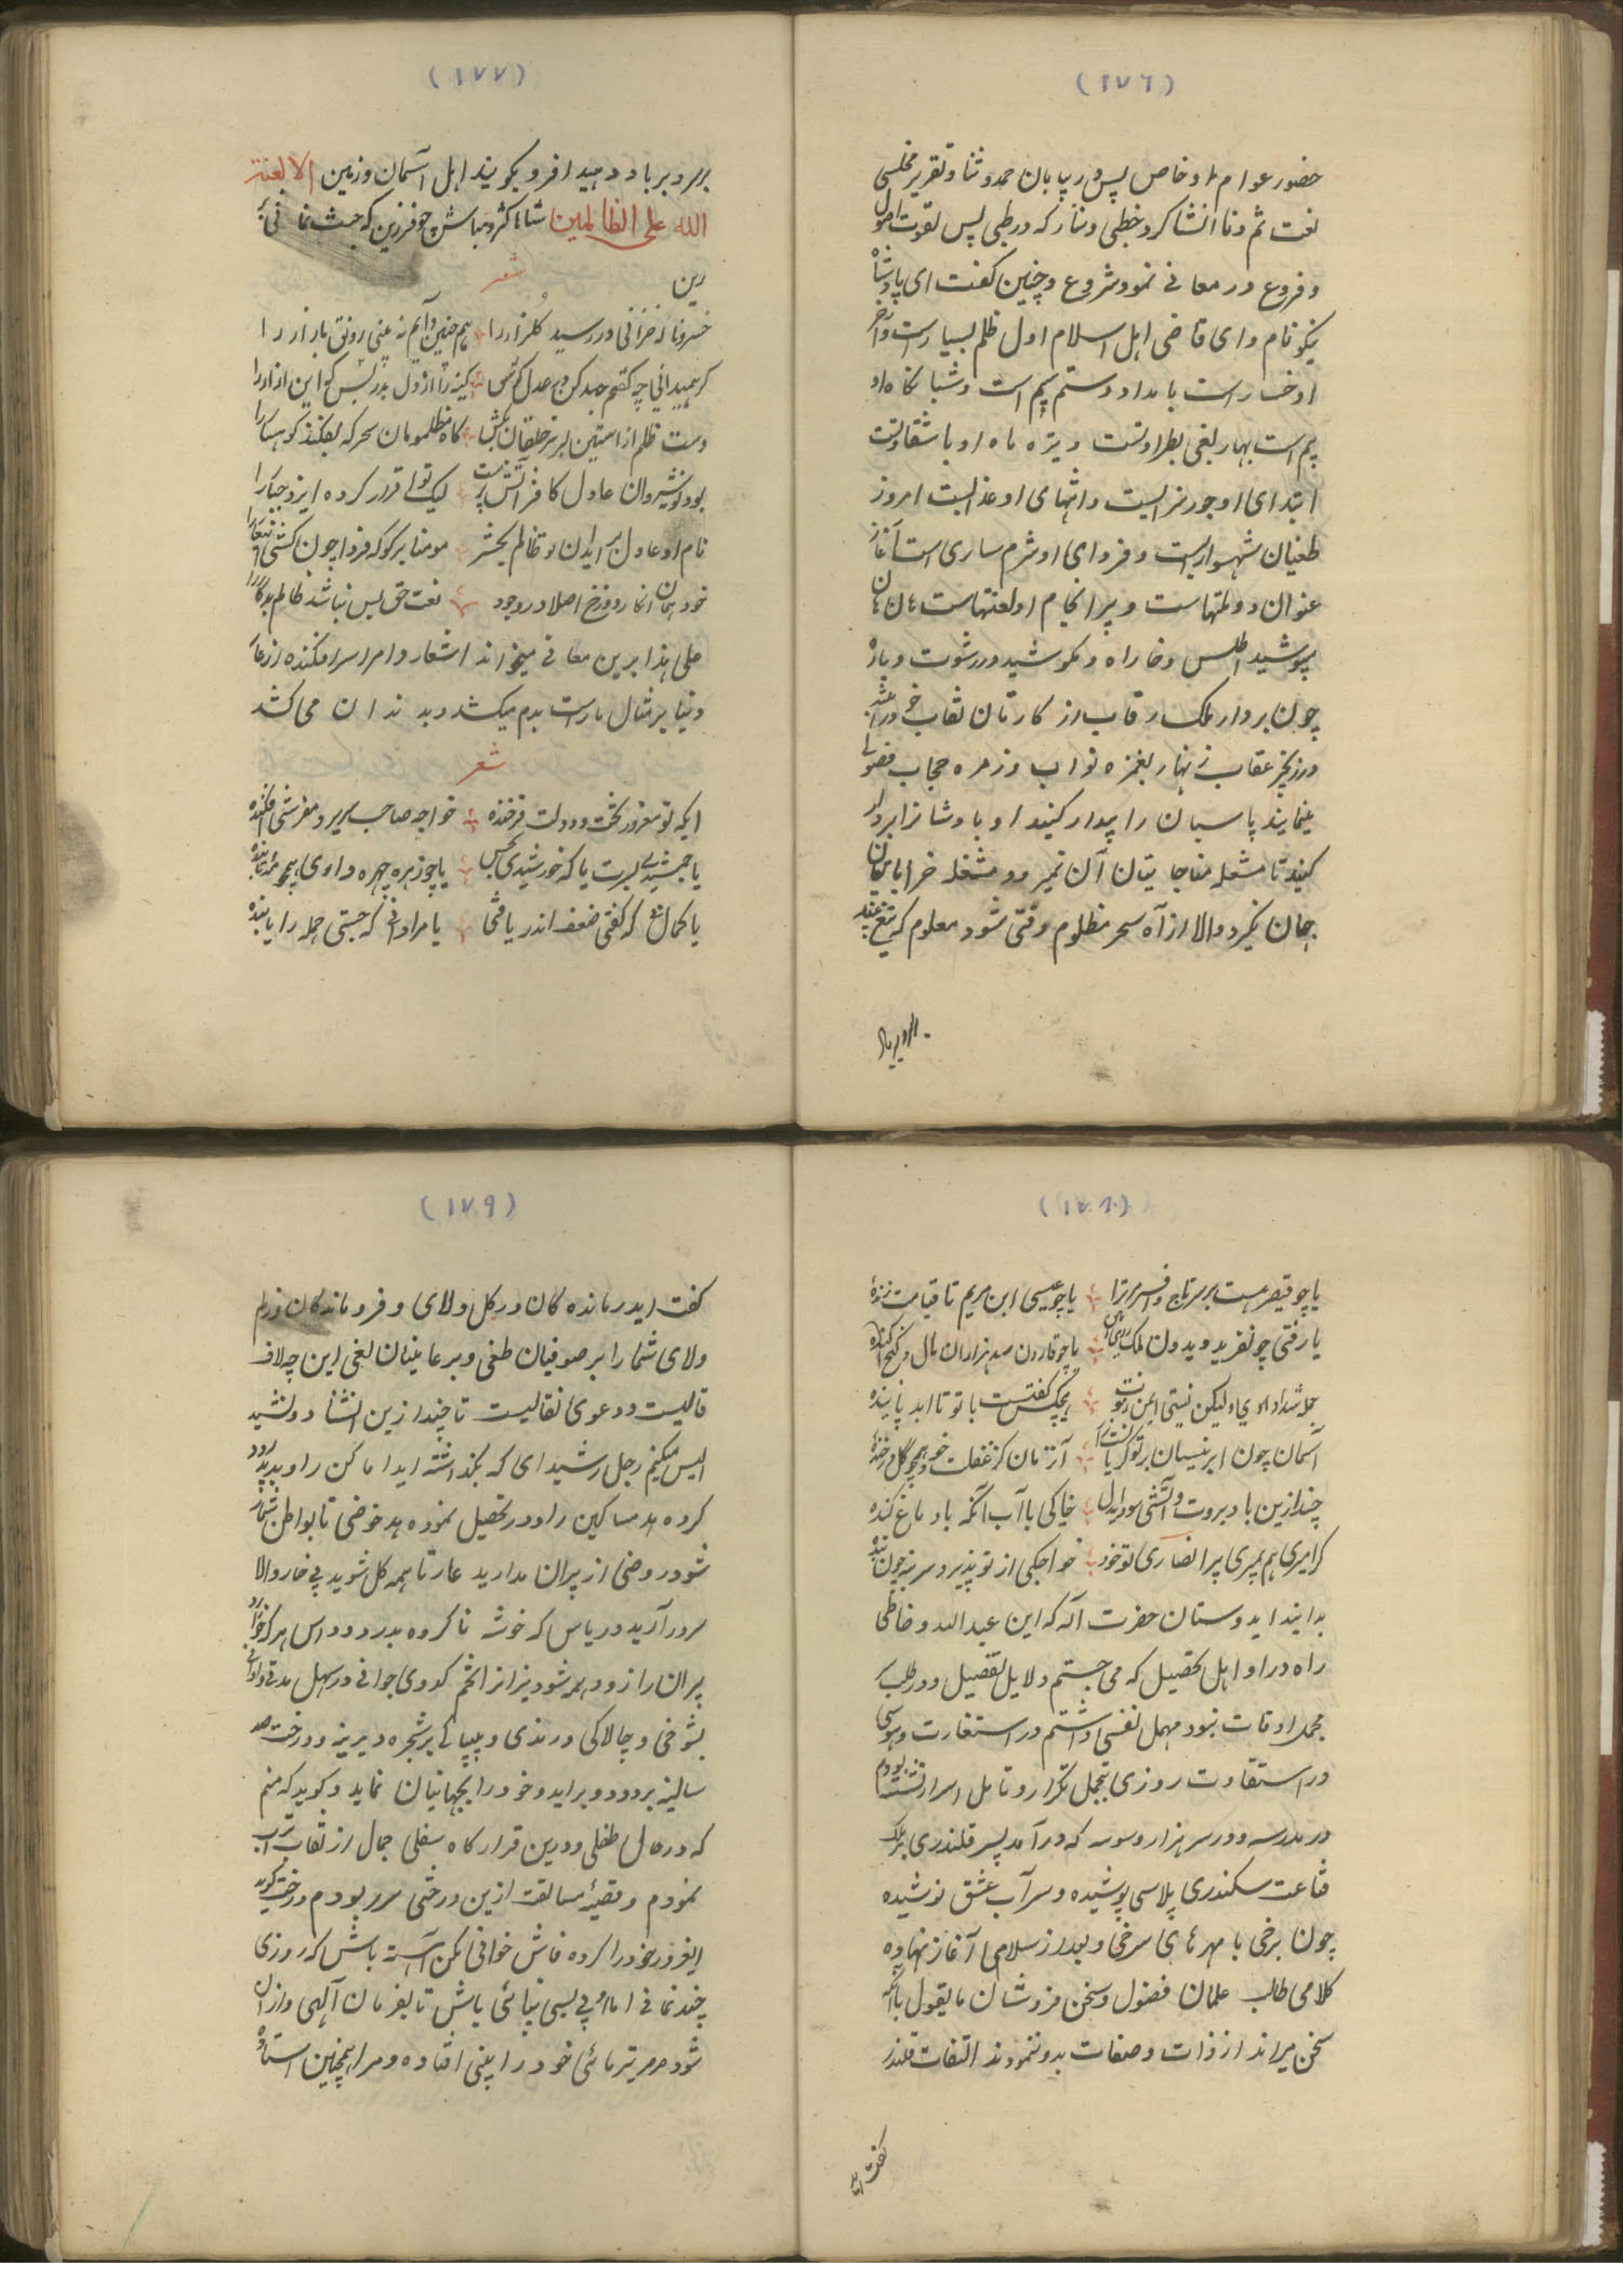 (١٧٦)
حضور عوام او خاص پس در پایان حمد و ثنا و تقریر مخلصی
نعت ثم دنا انشا کرد خطبی و نثار که در طبی پس بقوت اصول
و فروع در معانی نمود شروع و چنین کفت ای پادشاه
نیکو نام و ای قاضی اهل اسلام اول ظلم بسیارست و آخر
او خسارست بامداد و ستم بیم است و شبانکاه او
بیم است بهار بغی بطراوتست و تیره ماه او با شقاوتست
ابتدای او جور نزالیست و انتهای او عذابست امروز
طغیان شهسواریست و فردای او شرم ساری است آغاز
عنوان دولتهاست و بر انجام او لعنتهاست هان هان
بپوشید اطلس و خارا و مکوشید در رشوت و پاره
چون بردار ملک رقاب از کارتان نقاب خود را
در زنجیر عقاب زنهار بغمزه نواب و زمره حجاب فضولی
منمایید پاسبان را بیدار کنید او پادشا نرا بردار
کنید تا مشعله مفاجا بیتان آن نمیرد و مشغله خرابا بیتان
جهان نکیرد والا از آه سحر مظلوم وقتی شود معلوم که تیغ
(١٧٧)
بر سر و بر باد دهید افر و بکویند اهل آسمان و زمین الا لعنة
الله علی الظالمین شاها کژ و مباش چو فرزین که جبث نمائی
رین
شعر
خسروناکه خزانی در رسید گلزار را هم چنین دایم نه بینی رونق بازار را
کر همیدانی چه کفتم جهد کن در عدل کوش کینه را از دل بدر کس کو این ازار را
دست ظلم از استین بر سر خلقان مکش کاه مظلومان سحرکه بفکند کوهسار را
بود نوشیروان عادل کافر آتش پرست لیک تو اقرار کرده ایزد جبار را
نام او عادل بر ایوان و تو ظالم بحشر مومنا بر کو که فردا چون کشی
خود همان انکار دوزخ اصلا در وجود نعت حق بس نباشد ظالم بدکار را
علی هذا برین معانی میخواند اشعار و امرا سرافکنده از عار
دنیا بر مثال مارست بدم میکشد و بدندان می کشد
شعر
ایکه تو مغرور تخت و دولت فرخنده خواجه صاحب سریر و مفرشی افکنده
یا جمشیدی بسرت یا که خورشیدی بحس یا چو زهره چهره داوی همچو مه تابنده
یا کمال کفتی ضعف اندر یافتی یا مراد انی که جستی جمله را یابنده
(١٧٨)
یا چو قیصر هست بر سر تاج و افسر مر ترا یا چو عیسی ابن مریم تا قیامت زنده
یا رفتی چو نفرید و یدون ملک یا چو قارون صد هزاران مال و کنج آکنده
جمله شداد او لیکن نیستی ایمن ز موت هیچکس کفتست با تو تا ابد پاینده
آسمان چون ابر نیسان بر تو کریان آنزمان کز غفلت خود همچو گل در خنده
چند ازین باد بروت و آتشی سود ایدل خاکی با آب آنکه باد ماغ کنده
کر امیری هم بمیری بر انصاری تو خود خواجکی از تو پذیرد سر بنه چون بنده
بدانید ایدوستان حضرت اله که این عبد الله و خاطی
راه در اوایل تحصیل که می جستم دلایل تفضیل و در طلب
مجمل اوقات نبود مهمل نفسی داشتم در استعارت و هوسی
در استفادت روزی بتحمل تکرار و تامل اسرار نشسته بودم
در مدرسه و در سر هزار وسوسه که در آمد پسر قلندری بر ملک
قناعت سکندری پلاسی پوشیده و سر آب عشق نوشیده
چون برخی با مهرهای سرخی و بعد از سلامی آغاز نهاده
کلامی طالب علمان فضول و سخن فروشان ما یقول با آنکه
سخن میراند از ذات و صفات بدو ننمودند التفات قلندر
کفت اید
(١٧٩)
کفت ایدر مانده کان در کل ولای و فرو ماندکان در لم
ولای شما را بر صوفیان طغی و بر عامیان بغی این چه لاف
قالیست و دعوی نقالیست تا چند ازین انشا و نشید
الیس منکم رجل رشید ای که بکذاشته اید اماکن را و بدرود
کرده اید مساکین را و در تحصیل نموده اید خوضی تا بواطن شما
شود روضی از پیران مدارید عار تا همه کل شوید بی خار والا
سر در آرید در یاس که خوشه ناکرده بدرود داس هر که
پیران را زود همسر شود نیز از آنخم کدوی جوانی در سهل مدتی
بشوخی و چالاکی و رندی و بیباکی بر شجره دیرینه و درخت صد
سالینه بر دود و بر اید و خود را بجهانیان نماید و کوید که منم
که در حال طفلی و درین قرار کاه سفلی جمال از نقاب تراب
نمودم و قضیه سابقت ازین درختی سر ربودم درخت کوید
ایغرور خود را کرده فاش خوانی مکن آهسته باش که روزی
چند نمائی اما بی بسی نپائی باش تا بفرمان آلهی وازان
شود صرصر تیرماهی خود را بینی افتاده و مرا همچنین استاده